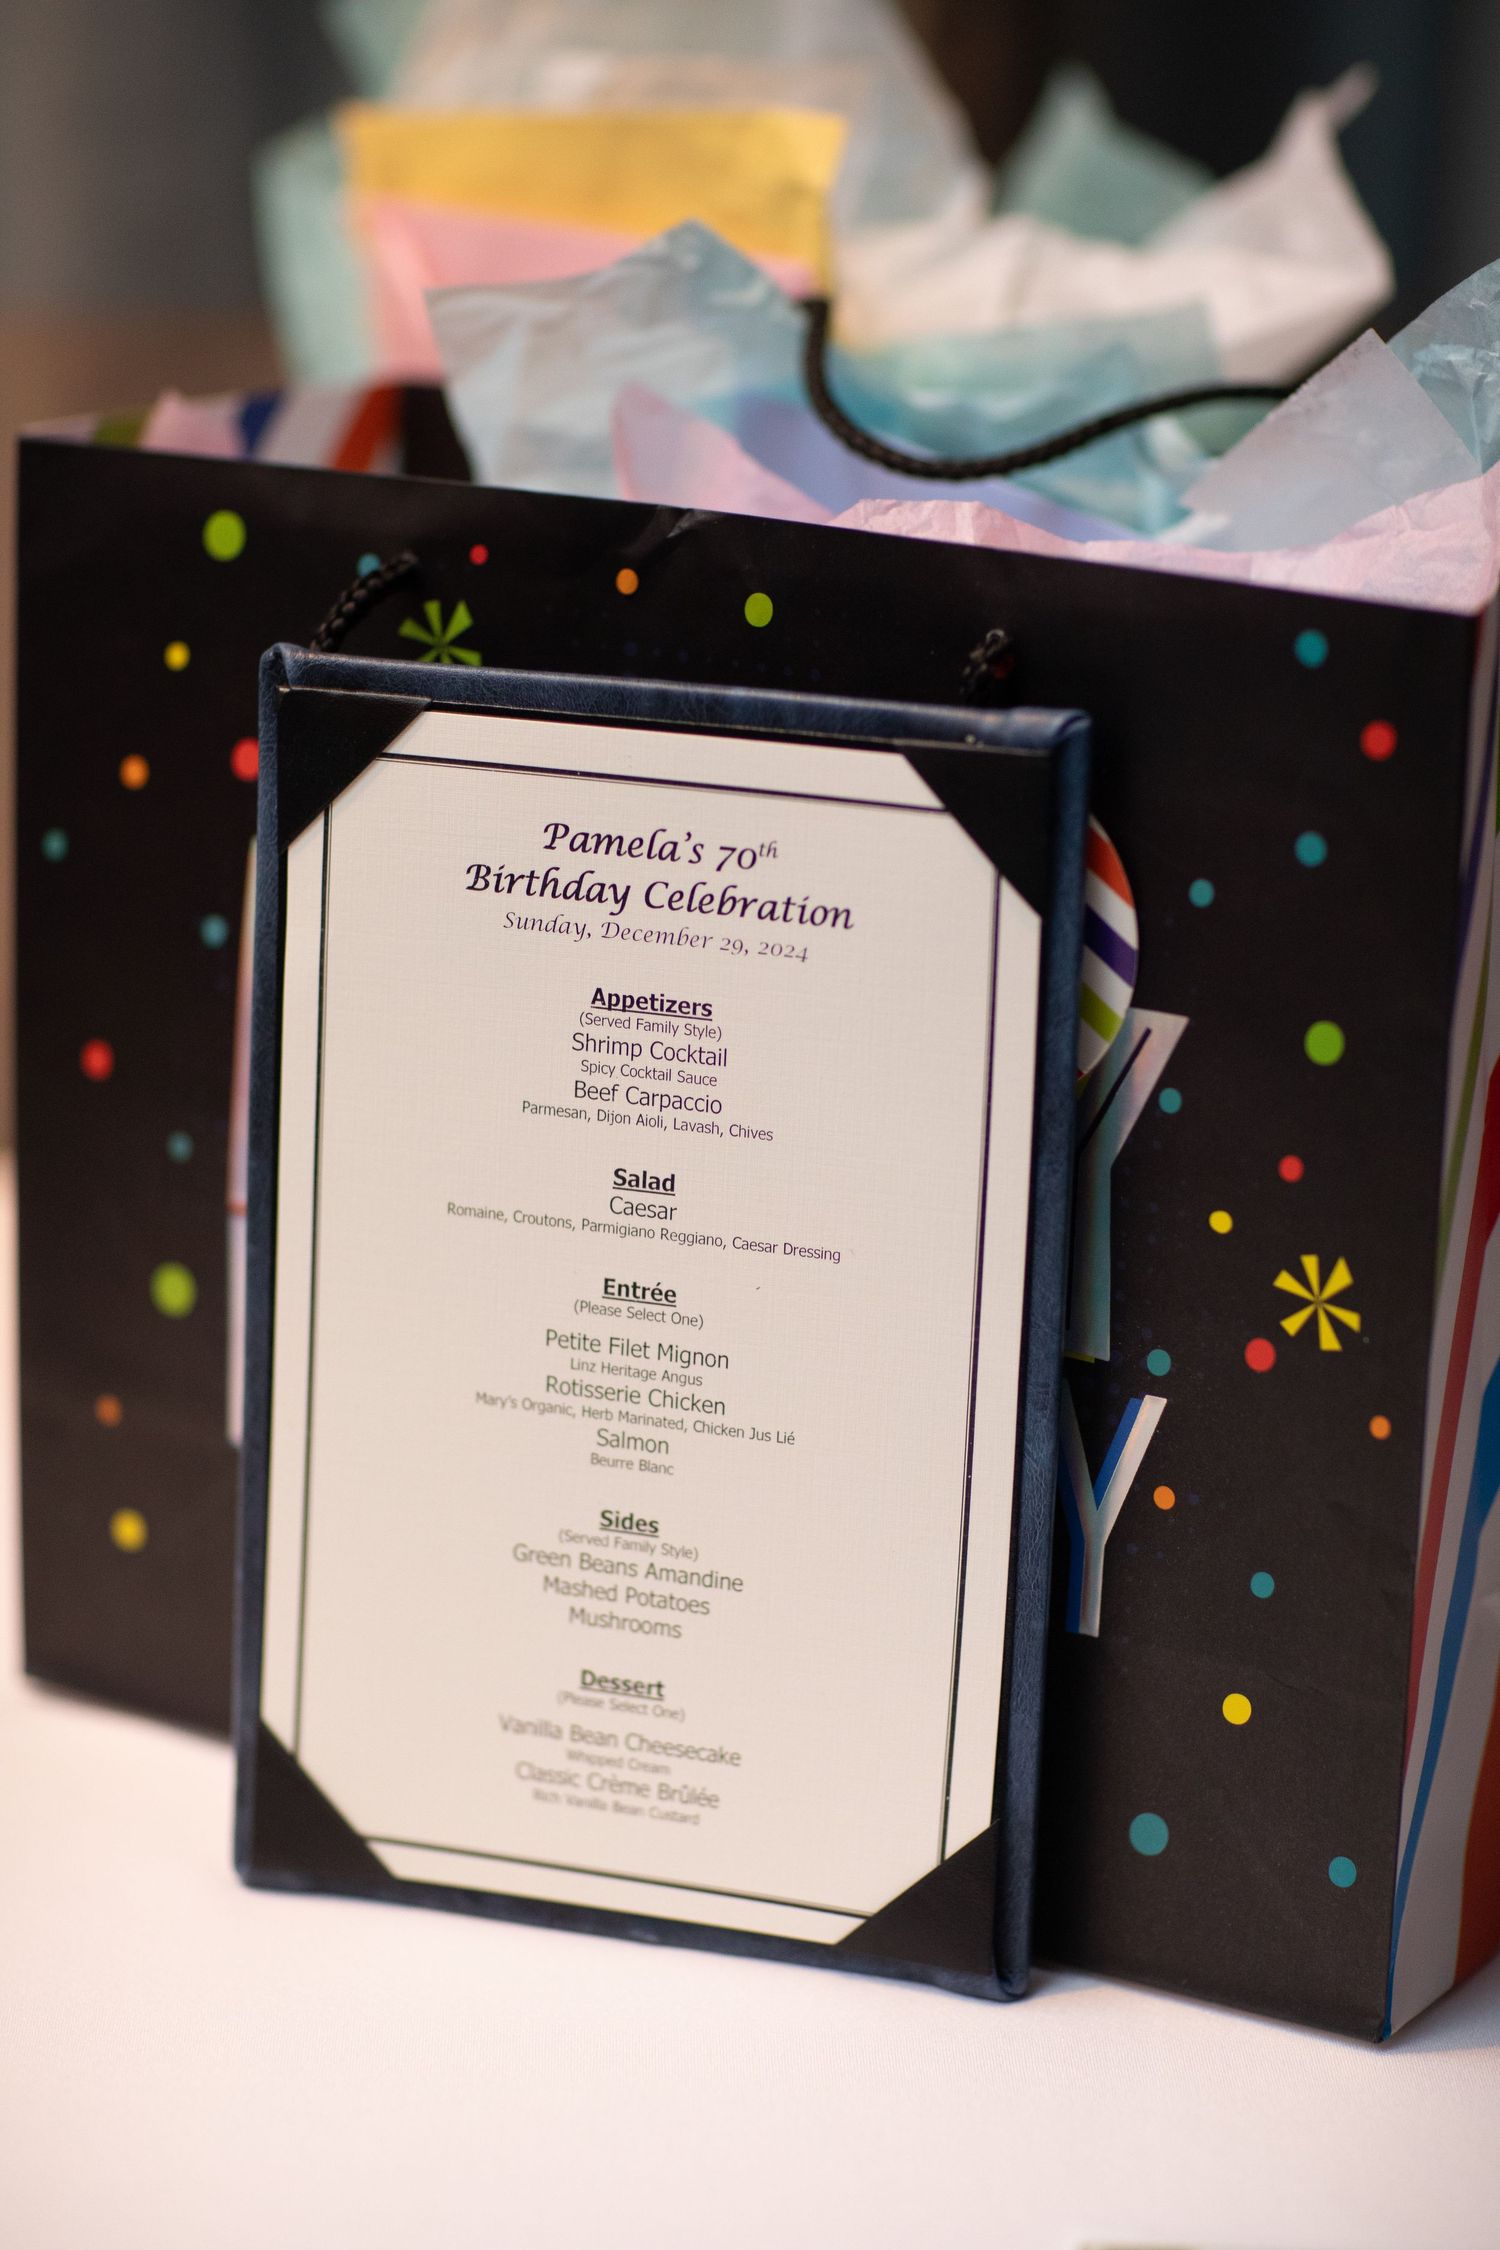 Pamela's 70th
Birthday Celebration
Sunday, December 29, 2024
Appetizers
(Served Family Style)
Shrimp Cocktail
Spicy Cocktail Sauce
Beef Carpaccio
Parmesan, Dijon Aioli, Lavash, Chives
Salad
Caesar
Romaine, Croutons, Parmigiano Reggiano, Caesar Dressing
Entrée
(Please Select One)
Petite Filet Mignon
Linz Heritage Angus
Rotisserie Chicken
Mary's Organic, Herb Marinated, Chicken Jus Lié
Salmon
Beurre Blanc
Sides
(Served Family Style)
Green Beans Amandine
Mashed Potatoes
Mushrooms
Dessert
(Please Select One)
Vanilla Bean Cheesecake
Whipped Cream
Classic Crème Brûlée
Rich Vanilla Bean Custard
Y
Y